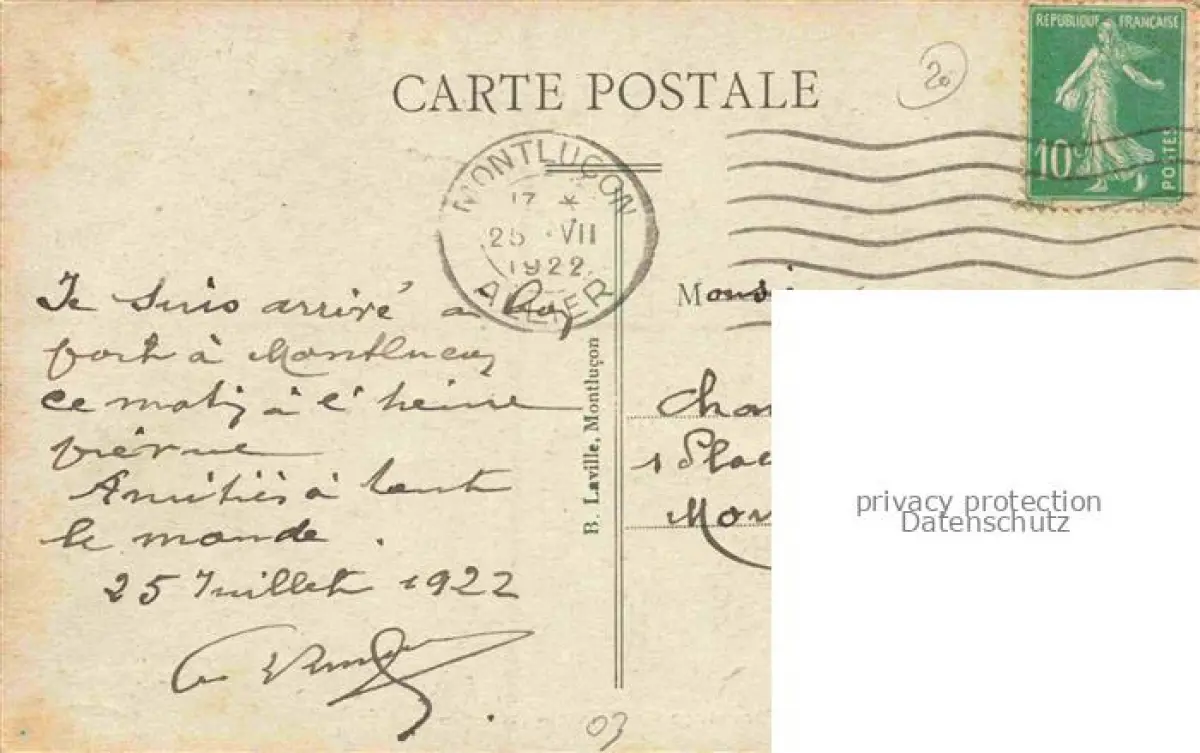 CARTE POSTALE
20
REPUBLIQUE FRANÇAISE
10c
POSTES
MONTLUÇON
17 *
25 VII
1922
ALLIER
Je suis arrivé à bon
port à Montluçon
ce matin à l'heure
prévue
Amitiés à tout
le monde.
25 Juillet 1922
B. Laville, Montluçon
Monsi
Char
1 Plac
Mon
privacy protection
Datenschutz
03